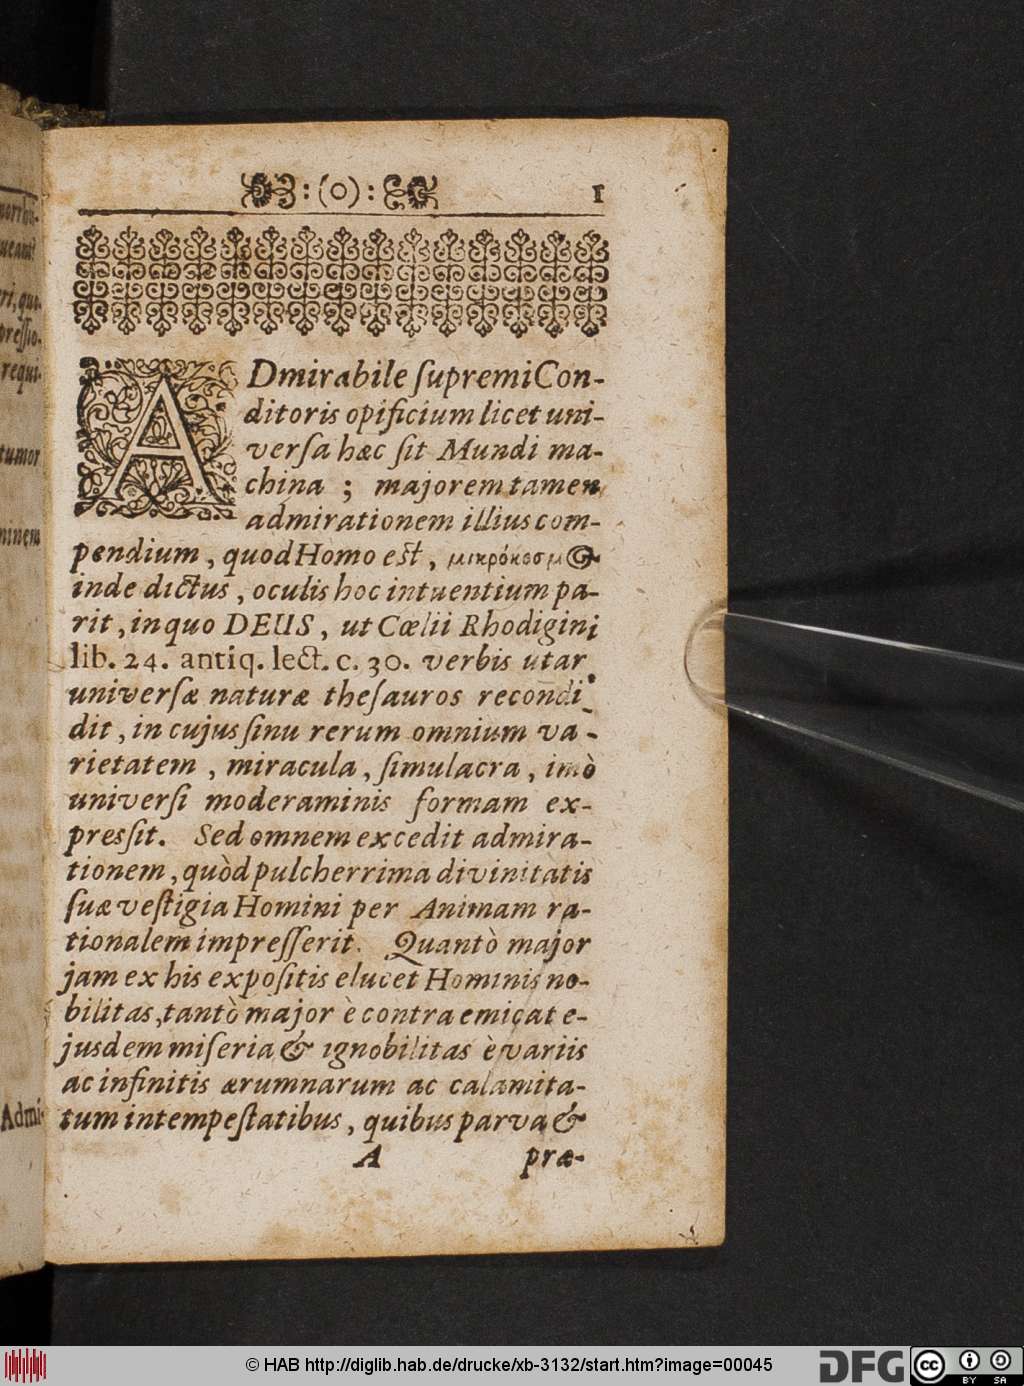 :(O): 1
ADmirabile ſupremi Con-
ditoris opificium licet uni-
verſa hæc ſit Mundi ma-
china ; majorem tamen
admirationem illius com-
pendium , quod Homo eſt , μικρόκοσμ
inde dictus , oculis hoc intuentium pa-
rit , in quo DEUS , ut Cœlii Rhodigini
lib. 24. antiq. lect. c. 30. verbis utar
univerſæ naturæ theſauros recondi-
dit , in cujus ſinu rerum omnium va-
rietatem , miracula , ſimulacra , imò
univerſi moderaminis formam ex-
presſit. Sed omnem excedit admira-
tionem , quòd pulcherrima divinitatis
ſuæ veſtigia Homini per Animam ra-
tionalem impreſſerit. Quantò major
jam ex his expoſitis elucet Hominis no-
bilitas, tantò major è contra emicat e-
jusdem miſeria & ignobilitas è variis
ac infinitis ærumnarum ac calamita-
tum intempeſtatibus , quibus parva &
A præ-
preſſio-
requi-
tumor
Admi-
© HAB http://diglib.hab.de/drucke/xb-3132/start.htm?image=00045
DFG cc BY SA